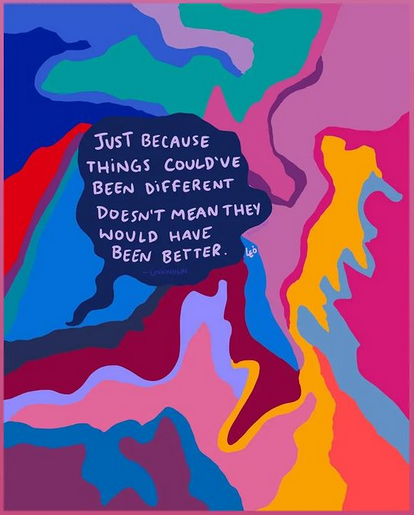 JUST BECAUSE
THINGS COULD'VE
BEEN DIFFERENT
DOESN'T MEAN THEY
WOULD HAVE
BEEN BETTER.